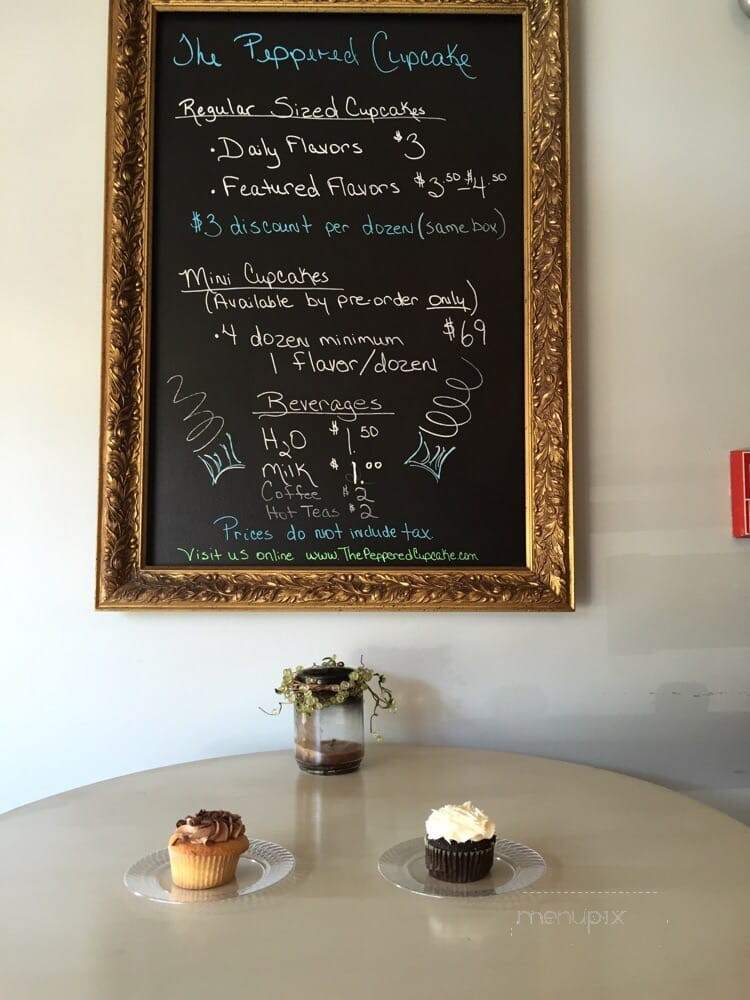 The Peppered Cupcake
Regular Sized Cupcakes
• Daily Flavors $3
• Featured Flavors $3.50-$4.50
$3 discount per dozen (same box)
Mini Cupcakes
(Available by pre-order only)
• 4 dozen minimum $69
1 flavor/dozen
Beverages
H2O $1.50
Milk $1.00
Coffee $2
Hot Teas $2
Prices do not include tax
Visit us online www.ThePepperedCupcake.com
menupix